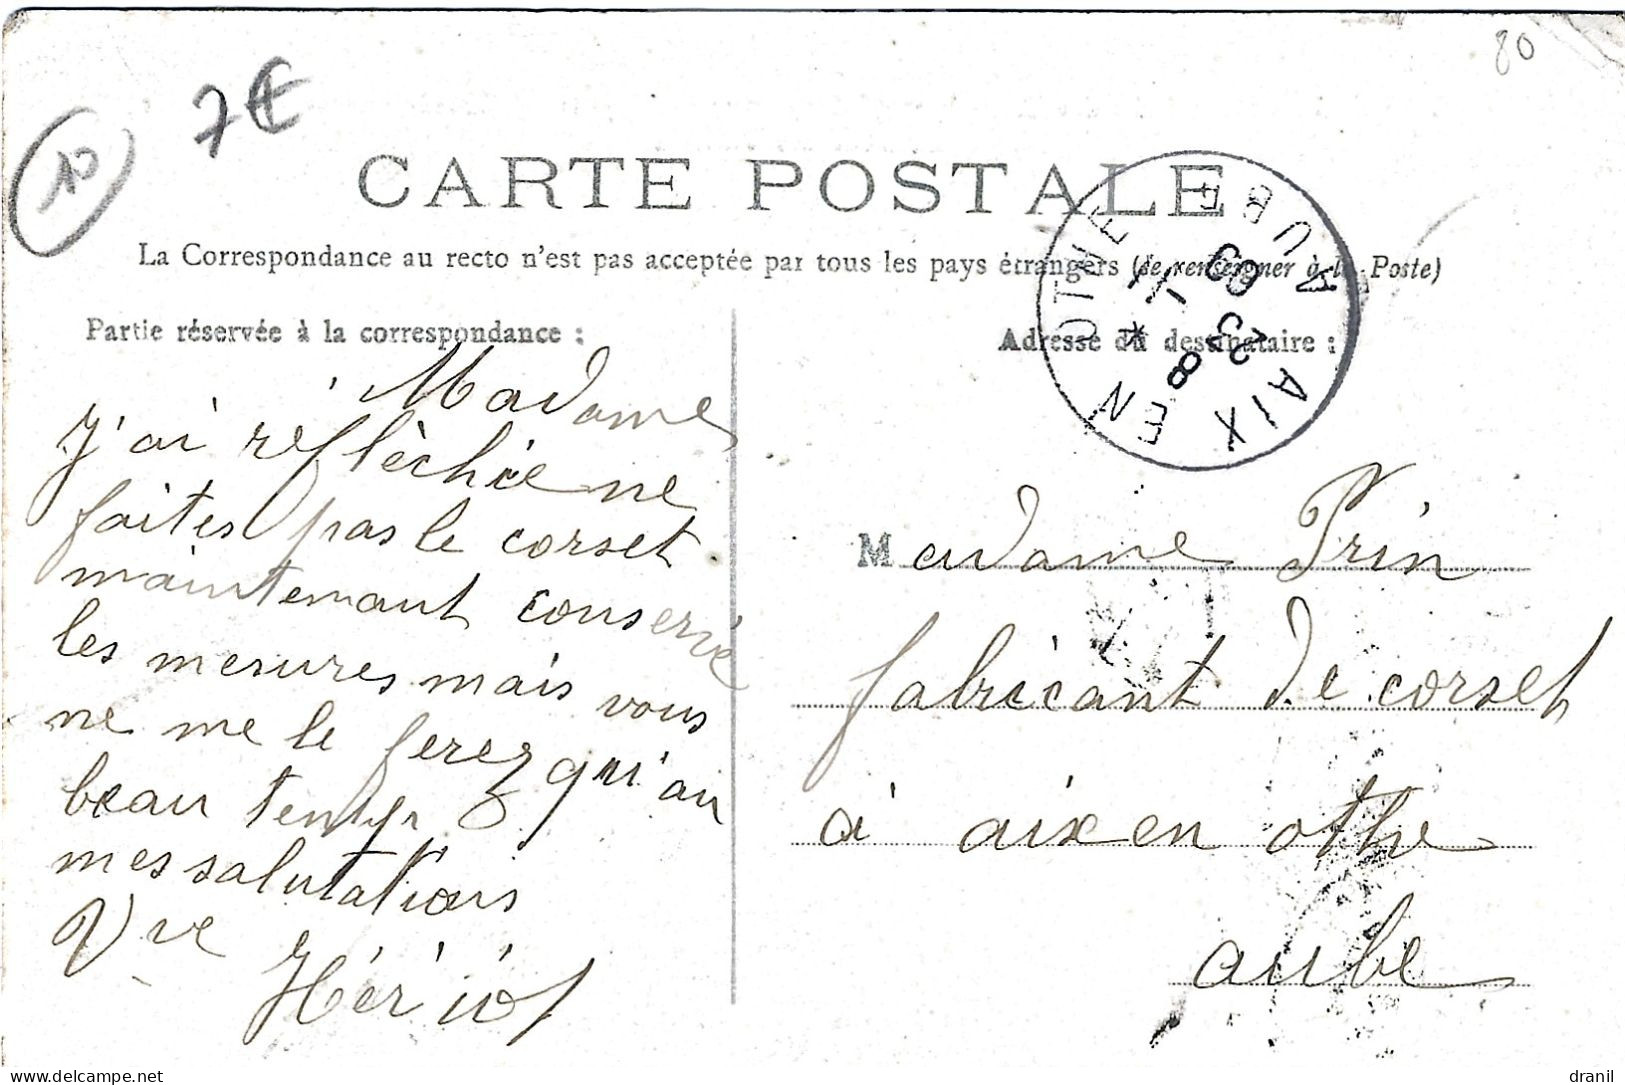 80
7€
10
CARTE POSTALE
La Correspondance au recto n'est pas acceptée par tous les pays étrangers (se renseigner à la Poste)
Partie réservée à la correspondance :
Madame
J'ai réflèchie ne
faites pas le corset
maintenant conservie
les mesures mais vous
ne me le ferez qu'au
beau temps
mes salutations
Vve Hériot
Adresse du destinataire :
AIX EN OTHE
AUBE
8
Madame Prin
fabricant de corset
à aix en othe
aube
delcampe.net
dranil